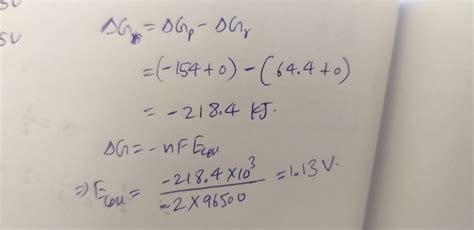 ΔG = ΔGp - ΔGr
= (-154+0) - (64.4+0)
= -218.4 kJ.
ΔG = -nFEcell
⇒ Ecell = -218.4×10³ / -2×96500 = 1.13V.